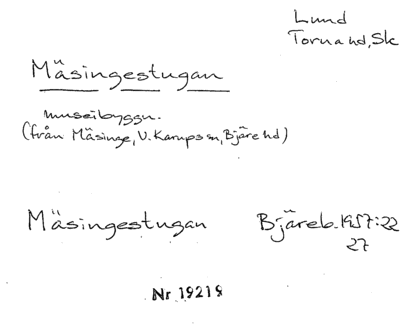 Lund
Torna hd, Sk
Mäsingestugan
museibyggn.
(från Mäsinge, V. Karups sn, Bjäre hd)
Mäsingestugan Bjäreb. 1957:22
27
Nr 19218